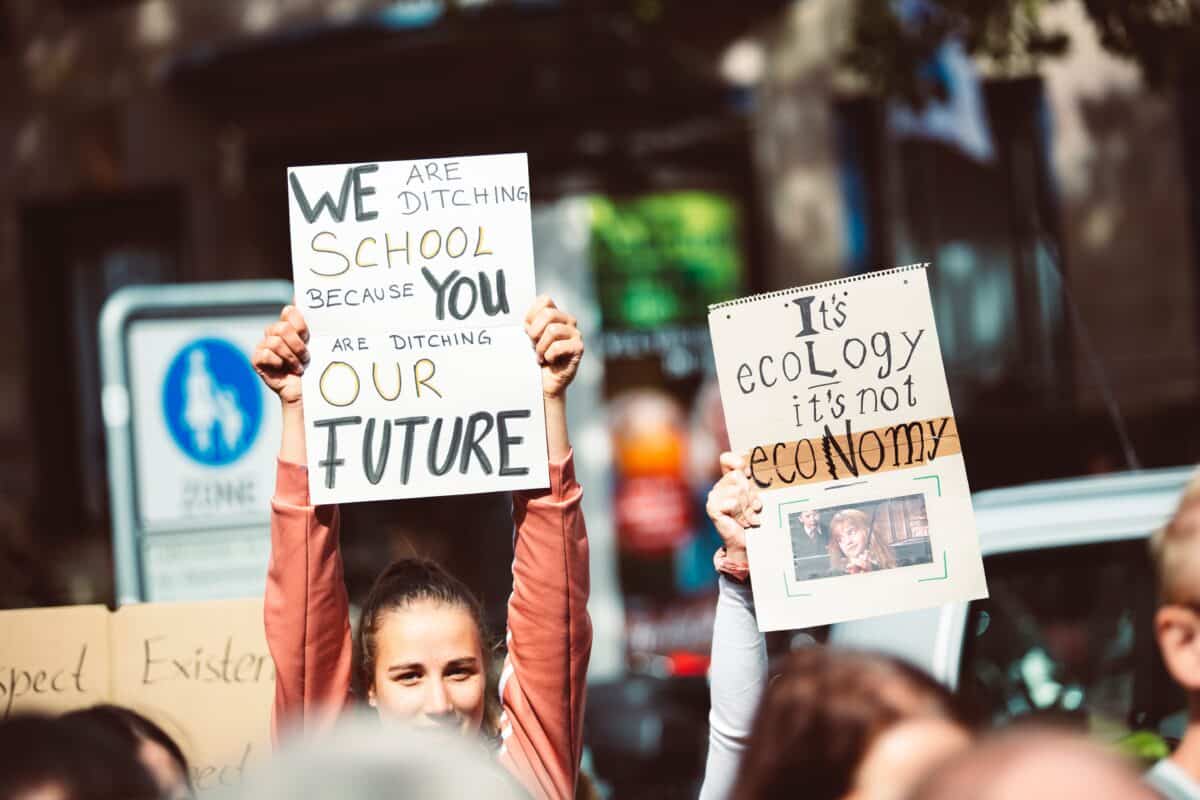 WE ARE
DITCHING
SCHOOL
BECAUSE YOU
ARE DITCHING
OUR
FUTURE
It's
ecoLogy
it's not
ecoNomy
ZONE
spect
Existen
spect